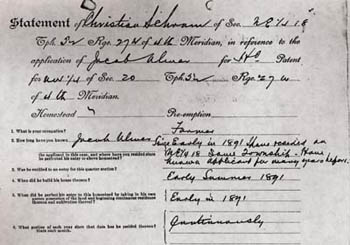 Statement of Christian Schram of Sec. NE 1/4 18
Tph. 32 Rge. 27 W of 4th Meridian, in reference to the
application of Jacob Ulmer for Patent
for NW 1/4 of Sec. 20 Tph 32 Rge. 27 W
of 4th Meridian.
Homestead Pre-emption
1. What is your occupation? Farmer
2. How long have you known Jacob Ulmer Since Early in 1891 I have resided on
the applicant in this case, and where have you resided since NE 1/4 18 Same Township. Have
he perfected his entry to above homestead? known applicant for many years before.
3. Was he entitled to any entry for this quarter section?
4. When did he build his house thereon? Early Summer 1891
5. When did he perfect his entry to this homestead by taking in his own
person possession of the land and beginning continuous residence
thereon and cultivation thereof? Early in 1891
6. What portion of each year since that date has he resided thereon?
State each month. Continuously